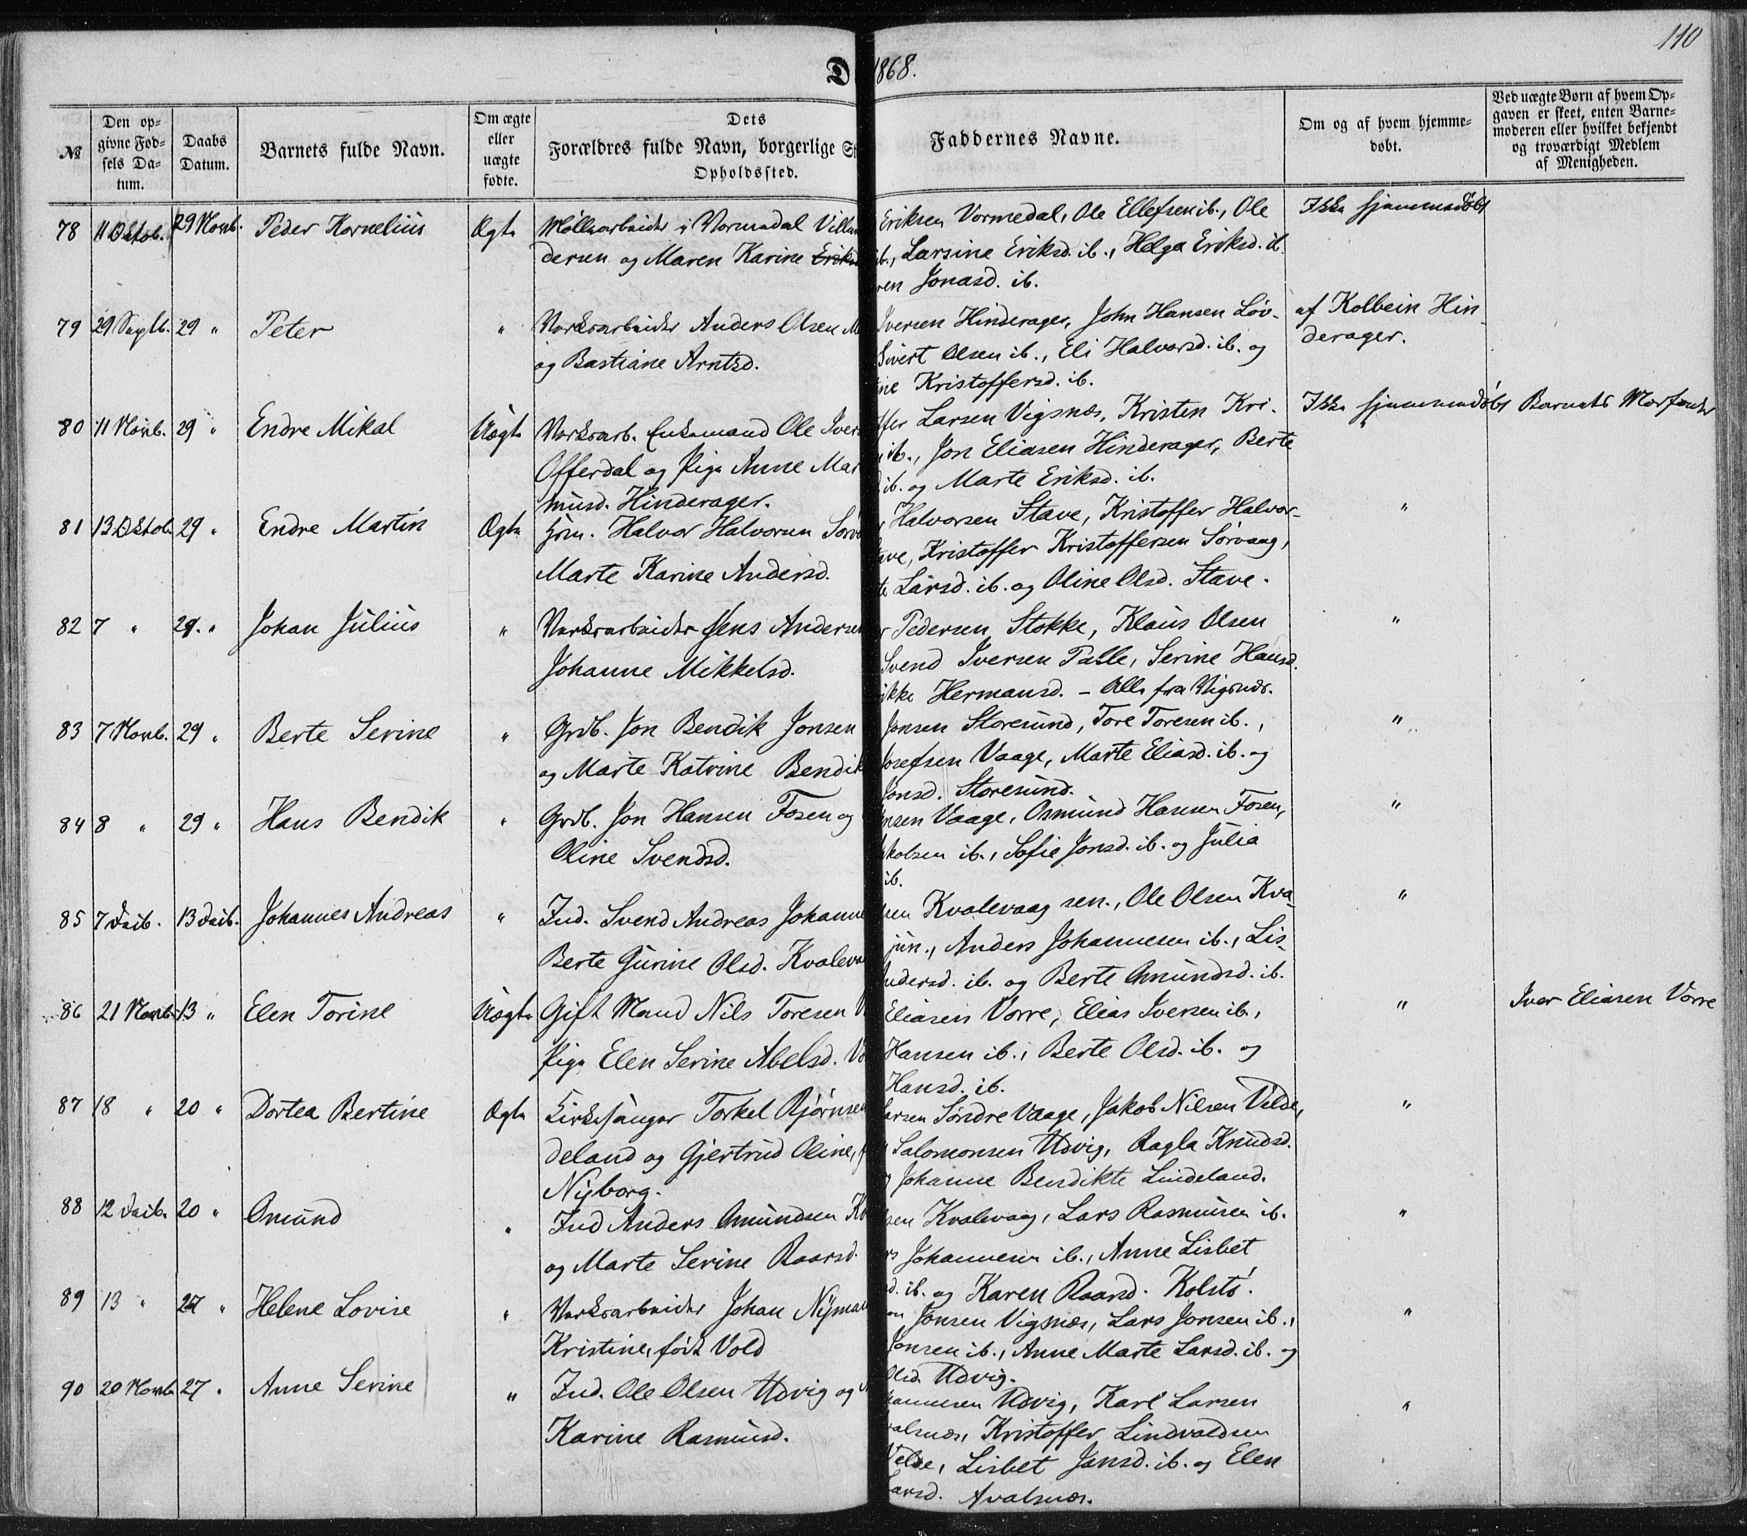 110
D 1868.
№ | Den opgivne Fødsels Datum. | Daabs Datum. | Barnets fulde Navn. | Om ægte eller uægte fødte. | Dets Forældres fulde Navn, borgerlige St Opholdssted. | Faddernes Navne. | Om og af hvem hjemmedøbt. | Ved uægte Børn af hvem Opgaven er skeet, enten Barnemoderen eller hvilket bekjendt og troværdigt Medlem af Menigheden.
78 11 Oktob. 29 Novb. Peder Kornelius Ægte Møllearbeider i Vormedal Eriksen Vormedal, Ole Ellefsen ib., Ole Ikke hjemmedøbt
dersen og Maren Karine ib., Larsine Eriksd. ib., Helga Eriksd. ib.
ren Jonasd. ib.
79 29 Septb. 29 " Peter " Verksarbeider Anders Olsen Iversen Hinderager, John Hansen Løv- af Kolbein Hin-
og Bastiane Arntsd. Sivert Olsen ib., Eli Halvorsd. ib. og derager.
ine Kristoffersd. ib.
80 11 Novb. 29 " Endre Mikal Uægte Verksarb. Enkemand Ole Iver ffer Larsen Vigsnæs, Kristen Kri- Ikke hjemmedøbt Barnets Morfader
Offerdal og Pige Anne Mar ib., Jon Eliasen Hinderager, Berte
musd. Hinderager. ib. og Marte Eriksd. ib.
81 13 Oktob. 29 " Endre Martin Ægte Halvor Halvorsen Sørv Halvorsen Stave, Kristoffer Halvor- "
Marte Karine Andersd. ave, Kristoffer Kristoffersen Sørvaag,
te Larsd. ib. og Oline Olsd. Stave.
82 7 " 29. " Johan Julius " Verksarbeider Jens Andersen Pedersen Stokke, Klaus Olsen "
Johanne Mikkelsd. Svend Iversen Serine Hansd.
ikke Hermansd. – Alle fra Vigsnæs.
83 7 Novb. 29 " Berte Serine " Grdb. Jon Bendik Jonsen Jonsen Storesund, Tore Toresen ib., "
og Marte Katrine Bendik Josefsen Vaage, Marte Eliasd. ib. og
Jonsd. Storesund.
84 8 " 29 " Hans Bendik " Grdb. Jon Hansen Fosen og nsen Vaage, Osmund Hansen Fosen, "
Oline Svendsd. kolsen ib., Sofie Jonsd. ib. og Julia
ib.
85 7 Decb. 13 Decb. Johannes Andreas " Ind. Svend Andreas Johanne sen Kvalevaag sen., Ole Olsen Kva- "
Berte Gurine Olsd. Kvaleva jun., Anders Johannesen ib., Lis-
ndersd. ib. og Berte Amundsd. ib.
86 21 Novb. 13 " Elen Torine Uægte Gift Mand Nils Toresen V Eliasen Vorre, Elias Iversen ib., " Iver Eliasen Vorre
Pige Elen Serine Abelsd. Vo Hansen ib., Berte Olsd. ib. og
Hansd. ib.
87 18 " 20 " Dortea Bertine Ægte Kirkesanger Torkel Bjørnsen Larsen Søndre Vaage, Jakob Nilsen Velde, "
deland og Gjertrud Oline, f Salomonsen Udvig, Ragla Knudsd.
Nyborg. Johanne Bendikte Lindeland.
88 12 Decb. 20 " Omund " Ind Anders Amundsen Kv sen Kvalevaag, Lars Rasmusen ib. "
og Marte Serine Roarsd. rs Johannesen ib., Anne Lisbet
d. ib. og Karen Roarsd. Kolstø.
89 13 " 27 " Helene Lovise " Verksarbeider Johan Nyman Jonsen Vigsnæs, Lars Jonsen ib., "
Kristine, født Vold Jonsen ib., Anne Marte Larsd. ib. og
Olsd. Udvig.
90 20 Novb. 27 " Anne Serine " Ind. Ole Olsen Udvig og hannesen Udvig, Karl Larsen "
Karine Rasmusd. valsnæs, Kristoffer Lindvaldsen
Velde, Lisbet Jansd. ib. og Elen
Larsd. Avalsnæs.